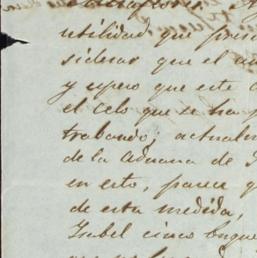 utilidad que
siderar que el
y espero que este
el celo que se ha
trabando, actualm
de la aduana de
en esto, parece q
de esta medida,
Isabel cinco buque